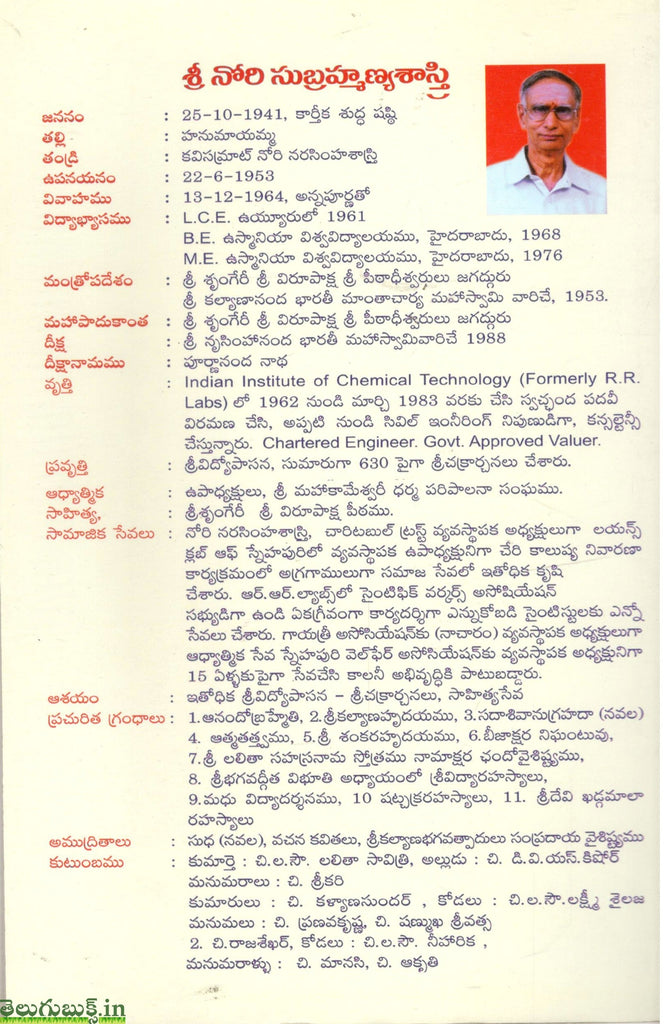 శ్రీ నోరి సుబ్రహ్మణ్యశాస్త్రి
జననం : 25-10-1941, కార్తీక శుద్ధ షష్ఠి
తల్లి : హనుమాయమ్మ
తండ్రి : కవిసమ్రాట్ నోరి నరసింహశాస్త్రి
ఉపనయనం : 22-6-1953
వివాహము : 13-12-1964, అన్నపూర్ణతో
విద్యాభ్యాసము : L.C.E. ఉయ్యూరులో 1961
B.E. ఉస్మానియా విశ్వవిద్యాలయము, హైదరాబాదు, 1968
M.E. ఉస్మానియా విశ్వవిద్యాలయము, హైదరాబాదు, 1976
మంత్రోపదేశం : శ్రీ శృంగేరీ శ్రీ విరూపాక్ష శ్రీ పీఠాధీశ్వరులు జగద్గురు
శ్రీ కల్యాణానంద భారతీ మాంతాచార్య మహాస్వామి వారిచే, 1953.
మహాపాదుకాంత : శ్రీ శృంగేరీ శ్రీ విరూపాక్ష శ్రీ పీఠాధీశ్వరులు జగద్గురు
దీక్ష : శ్రీ నృసింహానంద భారతీ మహాస్వామివారిచే 1988
దీక్షానామము : పూర్ణానంద నాథ
వృత్తి : Indian Institute of Chemical Technology (Formerly R.R.
Labs) లో 1962 నుండి మార్చి 1983 వరకు చేసి స్వచ్ఛంద పదవీ
విరమణ చేసి, అప్పటి నుండి సివిల్ ఇంనీరింగ్ నిపుణుడిగా, కన్సల్టెన్సీ
చేస్తున్నారు. Chartered Engineer. Govt. Approved Valuer.
ప్రవృత్తి : శ్రీవిద్యోపాసన, సుమారుగా 630 పైగా శ్రీచక్రార్చనలు చేశారు.
ఆధ్యాత్మిక : ఉపాధ్యక్షులు, శ్రీ మహాకామేశ్వరీ ధర్మ పరిపాలనా సంఘము.
సాహిత్య, : శ్రీశృంగేరీ శ్రీ విరూపాక్ష పీఠము.
సామాజిక సేవలు : నోరి నరసింహశాస్త్రి, చారిటబుల్ ట్రస్ట్ వ్యవస్థాపక అధ్యక్షులుగా లయన్స్
క్లబ్ ఆఫ్ స్నేహపురిలో వ్యవస్థాపక ఉపాధ్యక్షునిగా చేరి కాలుష్య నివారణా
కార్యక్రమంలో అగ్రగాములుగా సమాజ సేవలో ఇతోధిక కృషి
చేశారు. ఆర్.ఆర్.ల్యాబ్స్‌లో సైంటిఫిక్ వర్కర్స్ అసోషియేషన్
సభ్యుడిగా ఉండి ఏకగ్రీవంగా కార్యదర్శిగా ఎన్నుకోబడి సైంటిస్టులకు ఎన్నో
సేవలు చేశారు. గాయత్రీ అసోసియేషన్‌కు (నాచారం) వ్యవస్థాపక అధ్యక్షులుగా
ఆధ్యాత్మిక సేవ స్నేహపురి వెల్‌ఫేర్ అసోసియేషన్‌కు వ్యవస్థాపక అధ్యక్షునిగా
15 ఏళ్ళకుపైగా సేవచేసి కాలనీ అభివృద్ధికి పాటుబడ్డారు.
ఆశయం : ఇతోధిక శ్రీవిద్యోపాసన – శ్రీచక్రార్చనలు, సాహిత్యసేవ
ప్రచురిత గ్రంధాలు : 1.ఆనందోబ్రహ్మేతి, 2.శ్రీకల్యాణహృదయము, 3.సదాశివానుగ్రహదా (నవల)
4. ఆత్మతత్త్వము, 5.శ్రీ శంకరహృదయము, 6.బీజాక్షర నిఘంటువు,
7.శ్రీ లలితా సహస్రనామ స్తోత్రము నామాక్షర ఛందోవైశిష్ట్యము,
8. శ్రీభగవద్గీత విభూతి అధ్యాయంలో శ్రీవిద్యారహస్యాలు,
9.మధు విద్యాదర్శనము, 10 షట్చక్రరహస్యాలు, 11. శ్రీదేవి ఖడ్గమాలా
రహస్యాలు
అముద్రితాలు : సుధ (నవల), వచన కవితలు, శ్రీకల్యాణభగవత్పాదులు సంప్రదాయ వైశిష్ట్యము
కుటుంబము : కుమార్తె : చి.ల.సౌ. లలితా సావిత్రి, అల్లుడు : చి. డి.వి.యస్.కిషోర్
మనుమరాలు : చి. శ్రీకరి
కుమారులు : చి. కళ్యాణసుందర్ , కోడలు : చి.ల.సౌ.లక్ష్మీ శైలజ
మనుమలు : చి. ప్రణవకృష్ణ, చి. షణ్ముఖ శ్రీవత్స
2. చి.రాజశేఖర్, కోడలు : చి.ల.సౌ. నీహారిక ,
మనుమరాళ్ళు : చి. మానసి, చి. ఆకృతి
తెలుగుబుక్స్.in